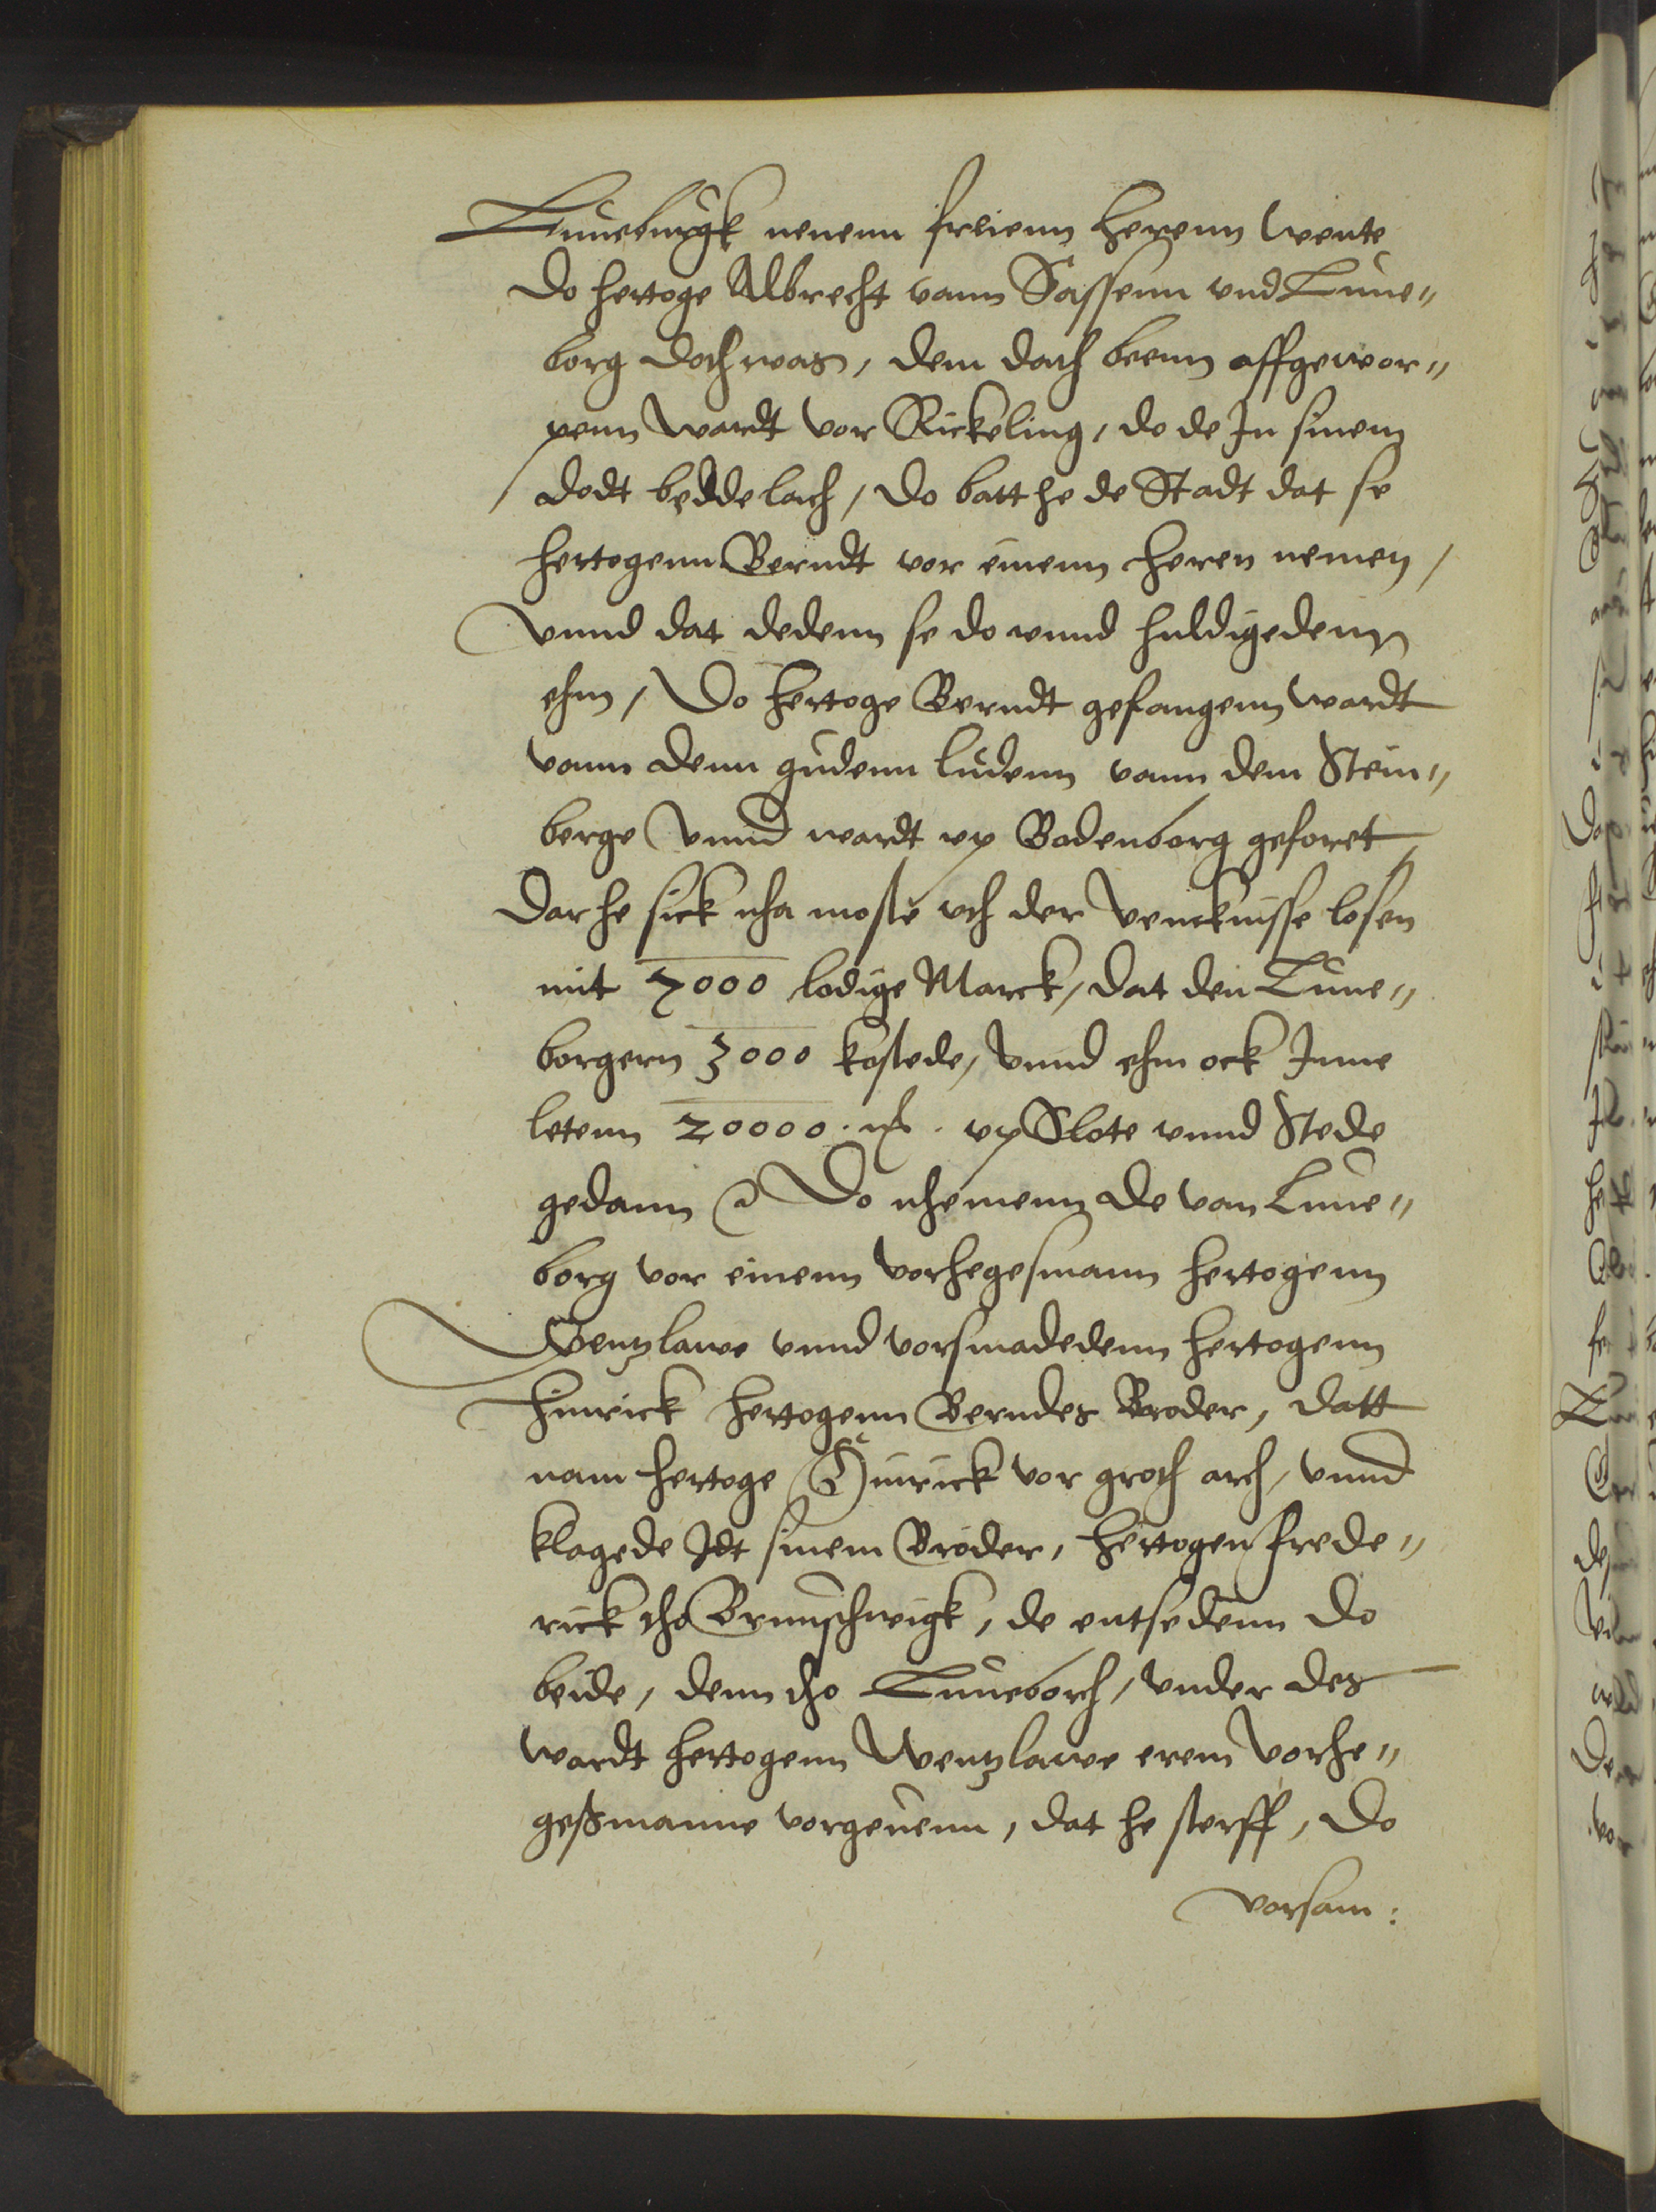 Luneburgk nenenn freienn herenn wente
do hertoge Albrecht vann Sassenn vnd Lune„
borg doch was, dem dach beenn affgewor„
penn wardt vor Rickeling, do de In sinem
dodt bedde lach, do batt he de Stadt dat se
hertogenn Berndt vor einenn heren nemen,
vnnd dat dedenn se do vnnd huldigedenn
ehm, Do hertoge Berndt gefangenn wardt
vann denn gudenn ludenn vann dem Stein„
berge vnnd wardt vp Bodenborg geforet,
dar he sick vha moste vth der vencknisse losen
mit 7000 lodige Marck, dat den Lune„
borgern 3000 kostede, vnnd ehm ock Inne
letenn 20000 . mk . vp Slote vnnd Stede
gedann Do nhemenn de van Lune„
borg vor einenn vorhegesmann hertogenn
Wentzlawe vnnd vorsmadedenn hertogenn
Hinrick hertogenn Berndes Broder, datt
nam hertoge Hinrick vor groth arch, vnnd
klagede Idt sinem Broder, hertogen frede„
rick tho Brunschweigk, de entsedenn do
beide, denn tho Luneborch, vnder des
wardt hertogenn Wentzlawe erem vorhe„
geßmanne vorgeuenn, dat he sterff, do
vorsam: